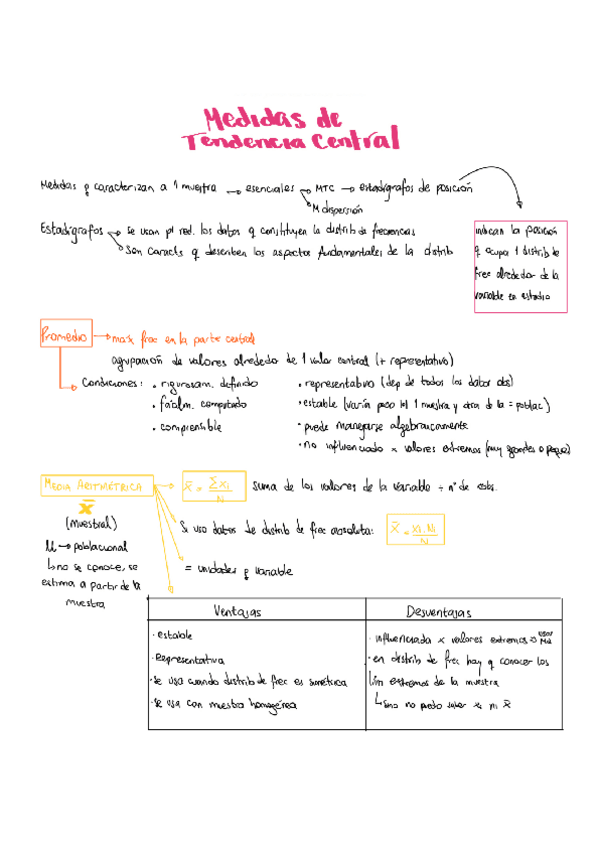 Medidas de
Tendencia Central
Medidas q caracterizan a 1 muestra → esenciales → MTC → estadígrafos de posición
M dispersión
Estadígrafos → se usan pl red. los datos q constituyen la distrib de frecuencias
Son caracts q describen los aspectos fundamentales de la distrib
indican la posición
q ocupa 1 distrib de
frec alrededor de la
variable en estudio
Promedio → max frec en la parte central
agrupación de valores alrededor de 1 valor central (+ representativo)
Condiciones: • rigurosam. definido
• fácilm. computado
• comprensible
• representativo (dep de todos los datos obs)
• estable (varía poco 1 muestra y otra de la = poblac)
• puede manejarse algebraicamente
• no influenciado x valores extremos (muy grandes o peques)
MEDIA ARITMÉTRICA
x̄
(muestral)
μ → poblacional
↳ no se conoce, se
estima a partir de la
muestra
x̄ = Σxi / N
suma de los valores de la variable ÷ nº de obs.
Si uso datos de distrib de frec absoluta:
x̄ = xi.Ni / N
= unidades q variable
Ventajas
· estable
· Representativa
· se usa cuando distrib de frec es simétrica
· se usa con muestra homogénea
Desventajas
· influenciada x valores extremos → usar Md
· en distrib de frec hay q conocer los
lim extremos de la muestra
↳ sino no puedo saber xi ni x̄